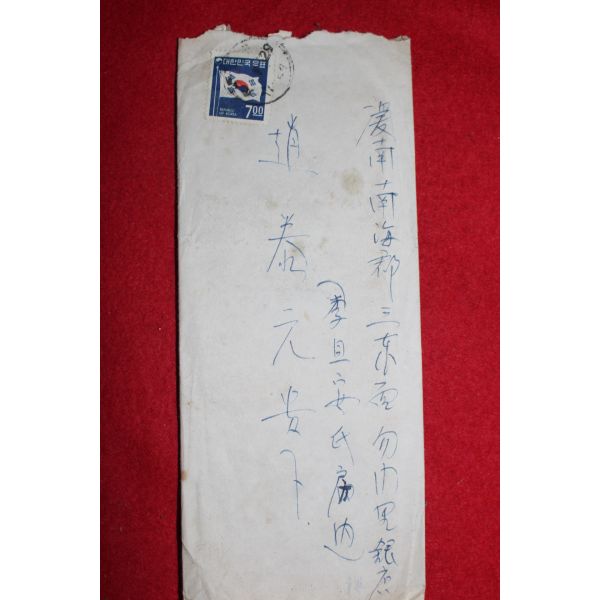 慶南南海郡三东面勿巾里銀店
(李且安氏房内)
趙泰元貴下
대한민국우표
REPUBLIC
OF KOREA
7.00
29